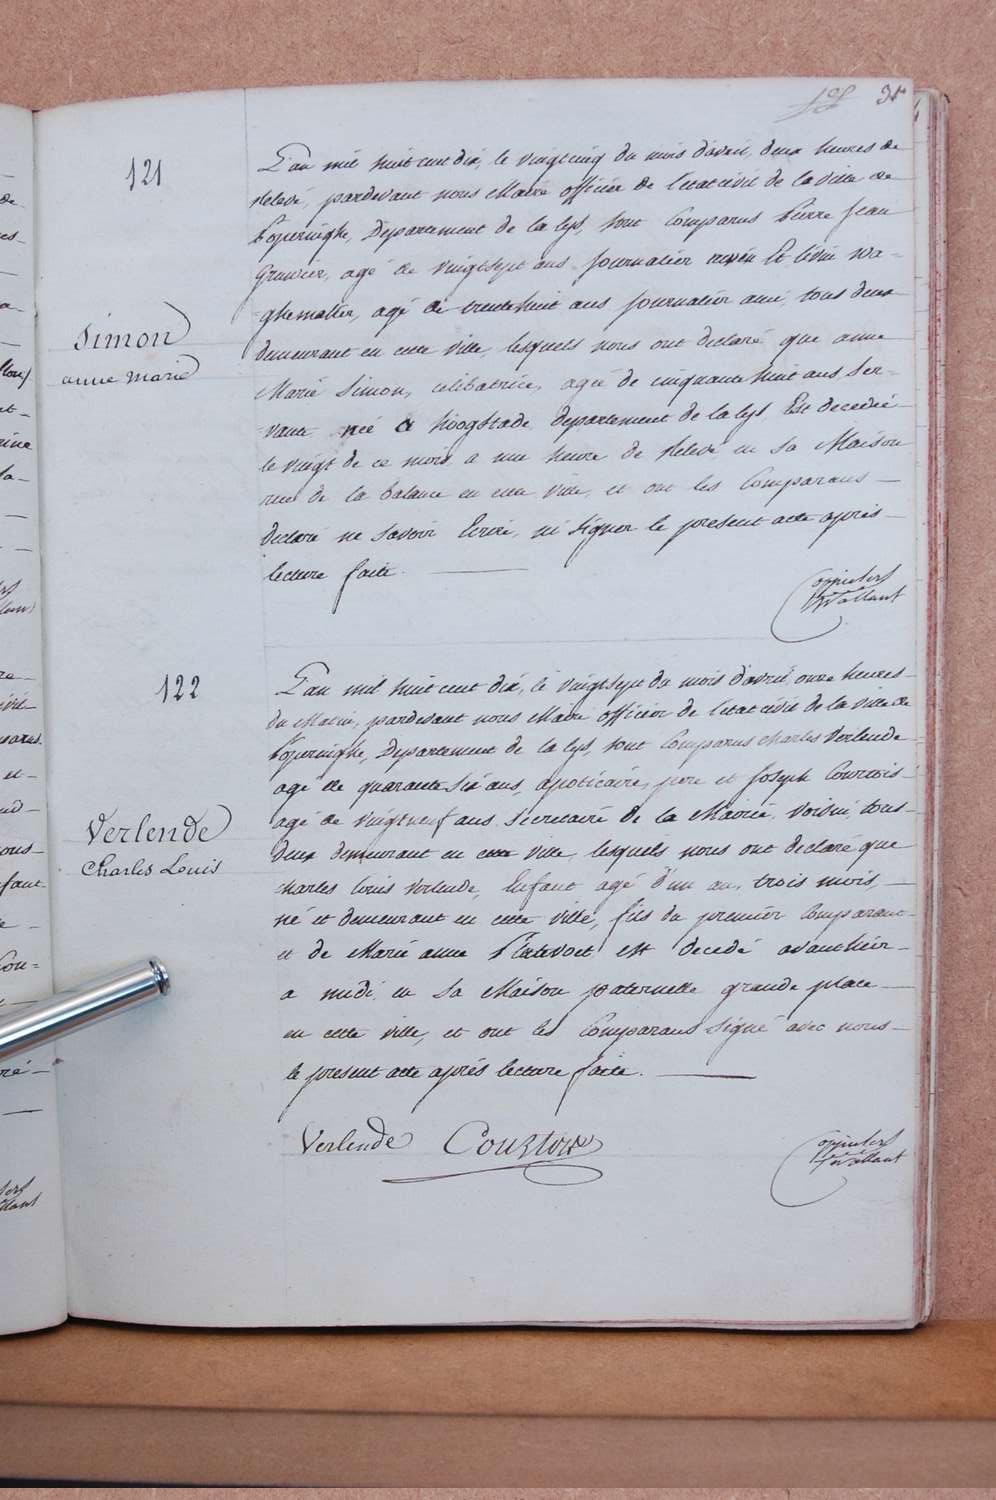 31
121
L'an mil huit cent dix, le vingt cinq du mois d'avril, deux heures de
relevé, pardevant nous Maire officier de l'état civil de la ville de
Poperinghe, Département de la Lys, sont Comparus Pierre Jean
age de vingt sept ans journalier et Livin Wa=
=ghemaker, agé de trente huit ans journalier ami, tous deux
demeurant en cette ville, lesquels nous ont declaré que anne
Simon
anne Marie
Marie Simon, celibatrice, agée de cinquante huit ans Ser-
vante née a hoogstade departement de la Lys Est decedée
le vingt de ce mois a une heure de relevé en sa Maison
rue de la balance en cette ville, et ont les Comparans
declaré ne savoir Ecrire, ni signer le present acte après
lecture faite.
122
L'an mil huit cent dix, le vingt sept du mois d'avril, onze heures
du Matin, pardevant nous Maire officier de l'état civil de la ville de
Poperinghe, Département de la Lys, sont Comparus Charles Verlende
agé de quarante six ans, apoticaire, pere et Joseph Courtois
agé de vingt neuf ans secretaire de la Mairie, voisin, tous
Verlende
Charles Louis
deux demeurant en cette ville, lesquels nous ont declaré que
charles Louis Verlende, Enfant agé d'un an, trois mois,
né et demeurant en cette ville, fils du premier Comparant
et de Marie anne est decedé avanthier
a midi en sa Maison paternelle grande place
en cette ville, et ont les Comparans signé avec nous
le present acte après lecture faite.
Verlende Courtois